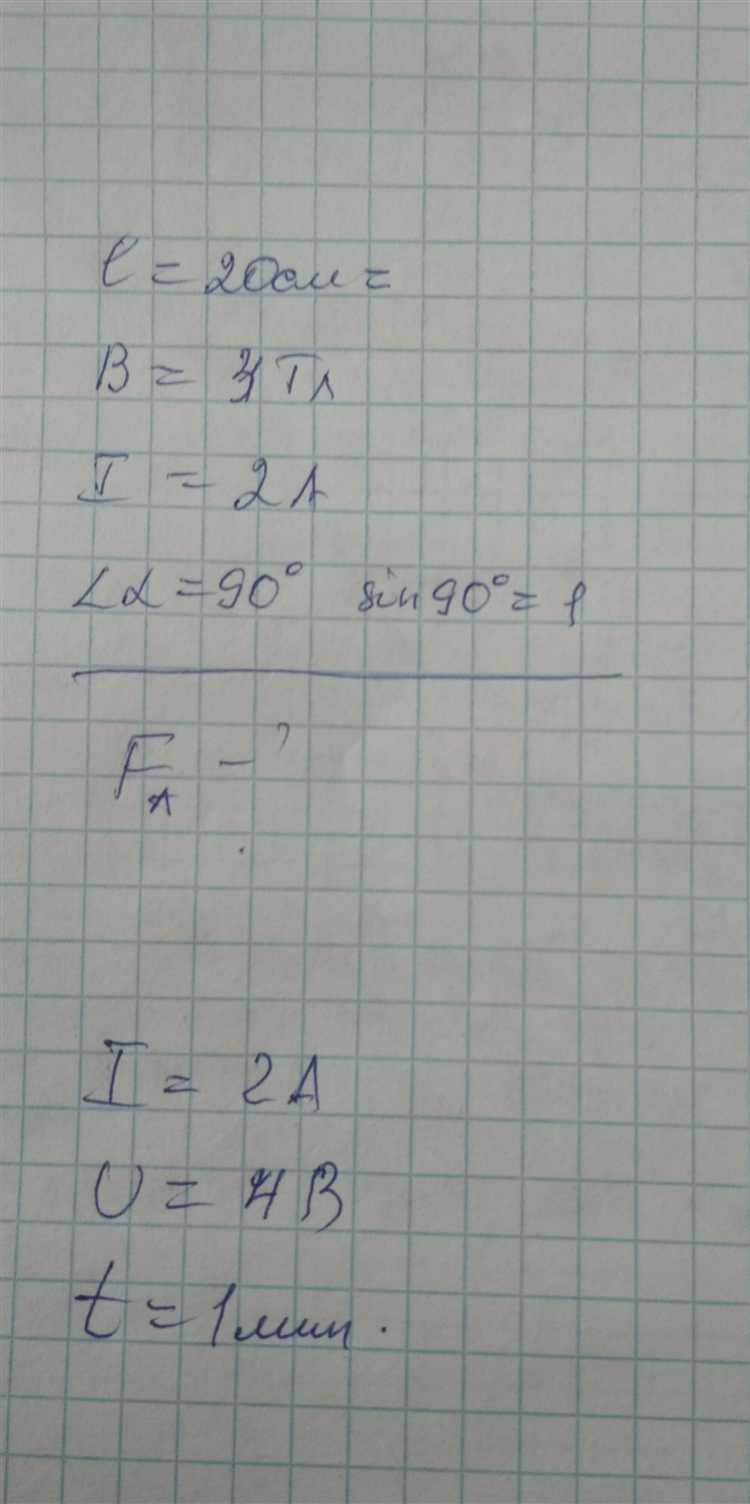 l = 20см =
B = 4 Тл
I = 2А
∠α = 90° sin 90° = 1
F_A - ?
I = 2А
U = 4В
t = 1мин.